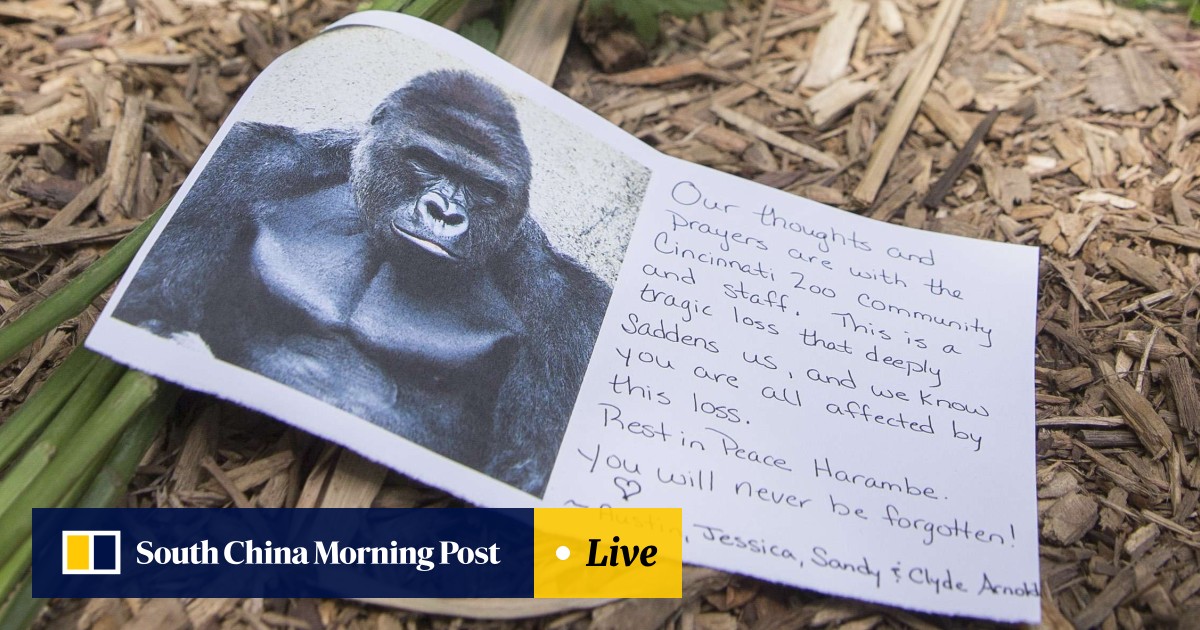 Our thoughts and
prayers are with the
Cincinnati Zoo community
and staff. This is a
tragic loss that deeply
Saddens us, and we know
you are all affected by
this loss.
Rest in Peace Harambe.
You will never be forgotten!
♡
~ Austin, Jessica, Sandy & Clyde Arnold
South China Morning Post
Live